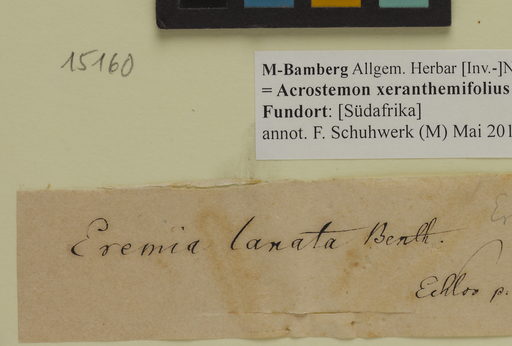 15160
M-Bamberg Allgem. Herbar [Inv.-]N
= Acrostemon xeranthemifolius
Fundort: [Südafrika]
annot. F. Schuhwerk (M) Mai 201
Eremia lanata Benth.
Ecklon p.